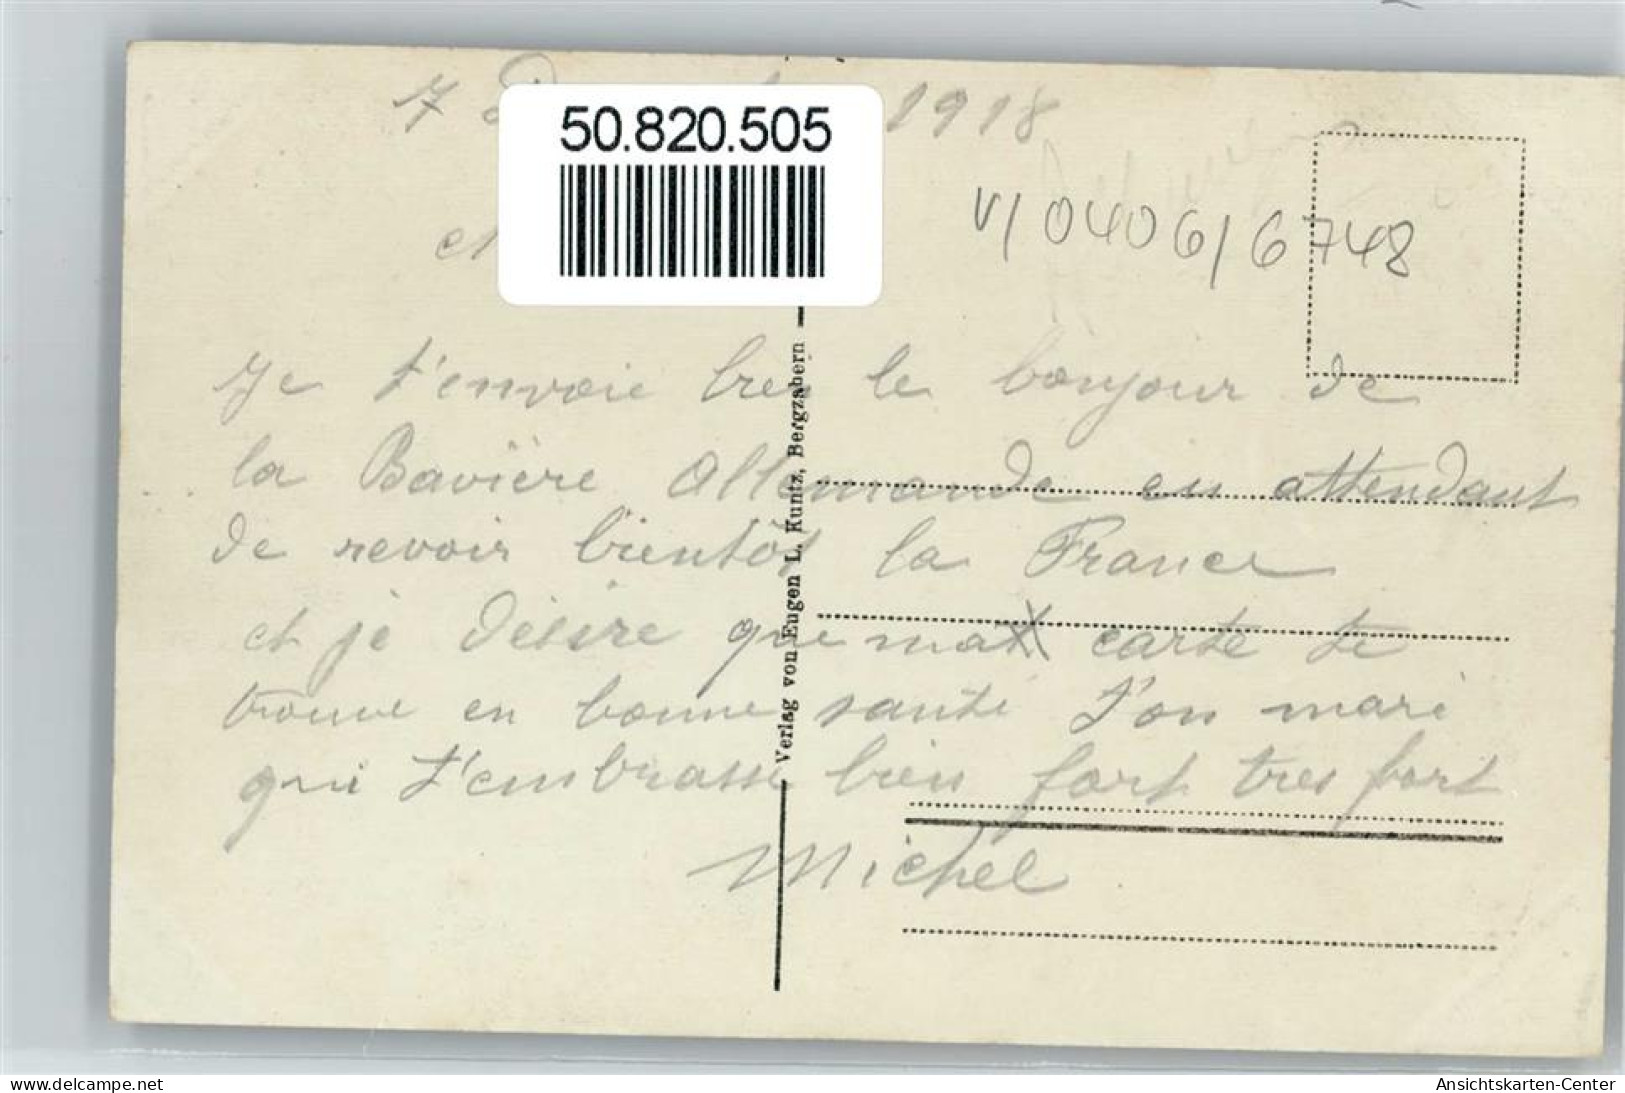 7 D 1918
50.820.505
V/0406/6748
Je t'envoie bien le bonjour de
la Bavière Allemande en attendant
de revoir bientôt la France
et je désire que ma carte te
trouve en bonne santé T'on mari
qui t'embrasse bien fort tres fort
Michel
Verlag von Eugen L. Kuntz, Bergzabern
delcampe.net
Ansichtskarten-Center